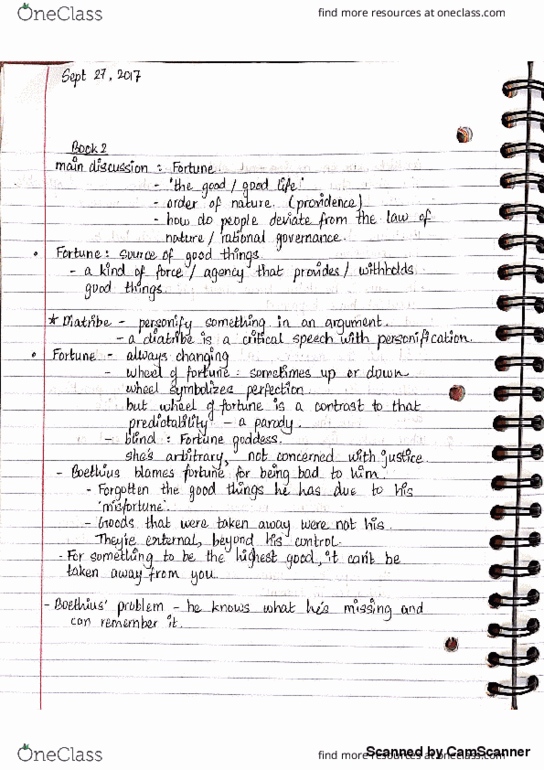 OneClass
find more resources at oneclass.com
Sept 27, 2017
Book 2
main discussion : Fortune
- "the good / good life"
- order of nature. (providence)
- how do people deviate from the law of
nature / rational governance.
• Fortune : source of good things.
- a kind of force / agency that provides / withholds
good things.
* Diatribe - personify something in an argument.
- a diatribe is a critical speech with personification.
• Fortune - always changing
- wheel of fortune : sometimes up or down.
wheel symbolizes perfection.
but wheel of fortune is a contrast to that
predictability - a parody.
- blind : Fortune goddess.
she's arbitrary, not concerned with justice.
- Boethius blames fortune for being bad to him.
- Forgotten the good things he has due to his
'misfortune'.
- Goods that were taken away were not his.
They're external, beyond his control.
- For something to be the highest good, it can't be
taken away from you.
- Boethius' problem - he knows what he's missing and
can remember it.
OneClass
find more resources at oneclass.com
Scanned by CamScanner